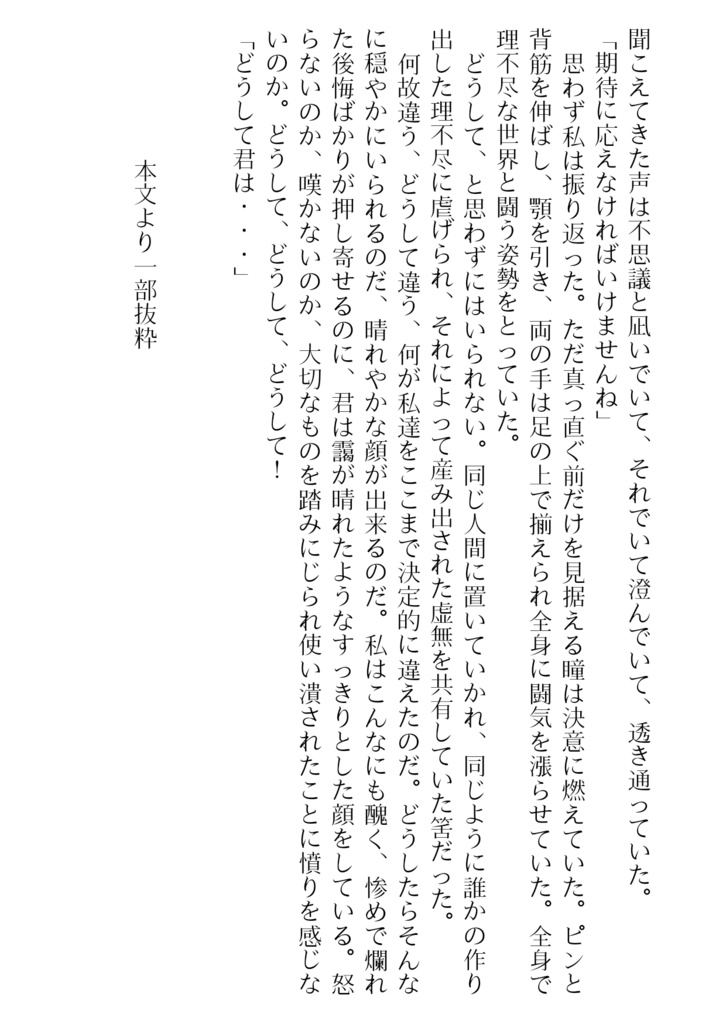 聞こえてきた声は不思議と凪いでいて、それでいて澄んでいて、透き通っていた。
「期待に応えなければいけませんね」
思わず私は振り返った。ただ真っ直ぐ前だけを見据える瞳は決意に燃えていた。ピンと
背筋を伸ばし、顎を引き、両の手は足の上で揃えられ全身に闘気を漲らせていた。全身で
理不尽な世界と闘う姿勢をとっていた。
どうして、と思わずにはいられない。同じ人間に置いていかれ、同じように誰かの作り
出した理不尽に虐げられ、それによって産み出された虚無を共有していた筈だった。
何故違う、どうして違う、何が私達をここまで決定的に違えたのだ。どうしたらそんな
に穏やかにいられるのだ、晴れやかな顔が出来るのだ。私はこんなにも醜く、惨めで爛れ
た後悔ばかりが押し寄せるのに、君は靄が晴れたようなすっきりとした顔をしている。怒
らないのか、嘆かないのか、大切なものを踏みにじられ使い潰されたことに憤りを感じな
いのか。どうして、どうして、どうして！
「どうして君は・・・」
本文より一部抜粋